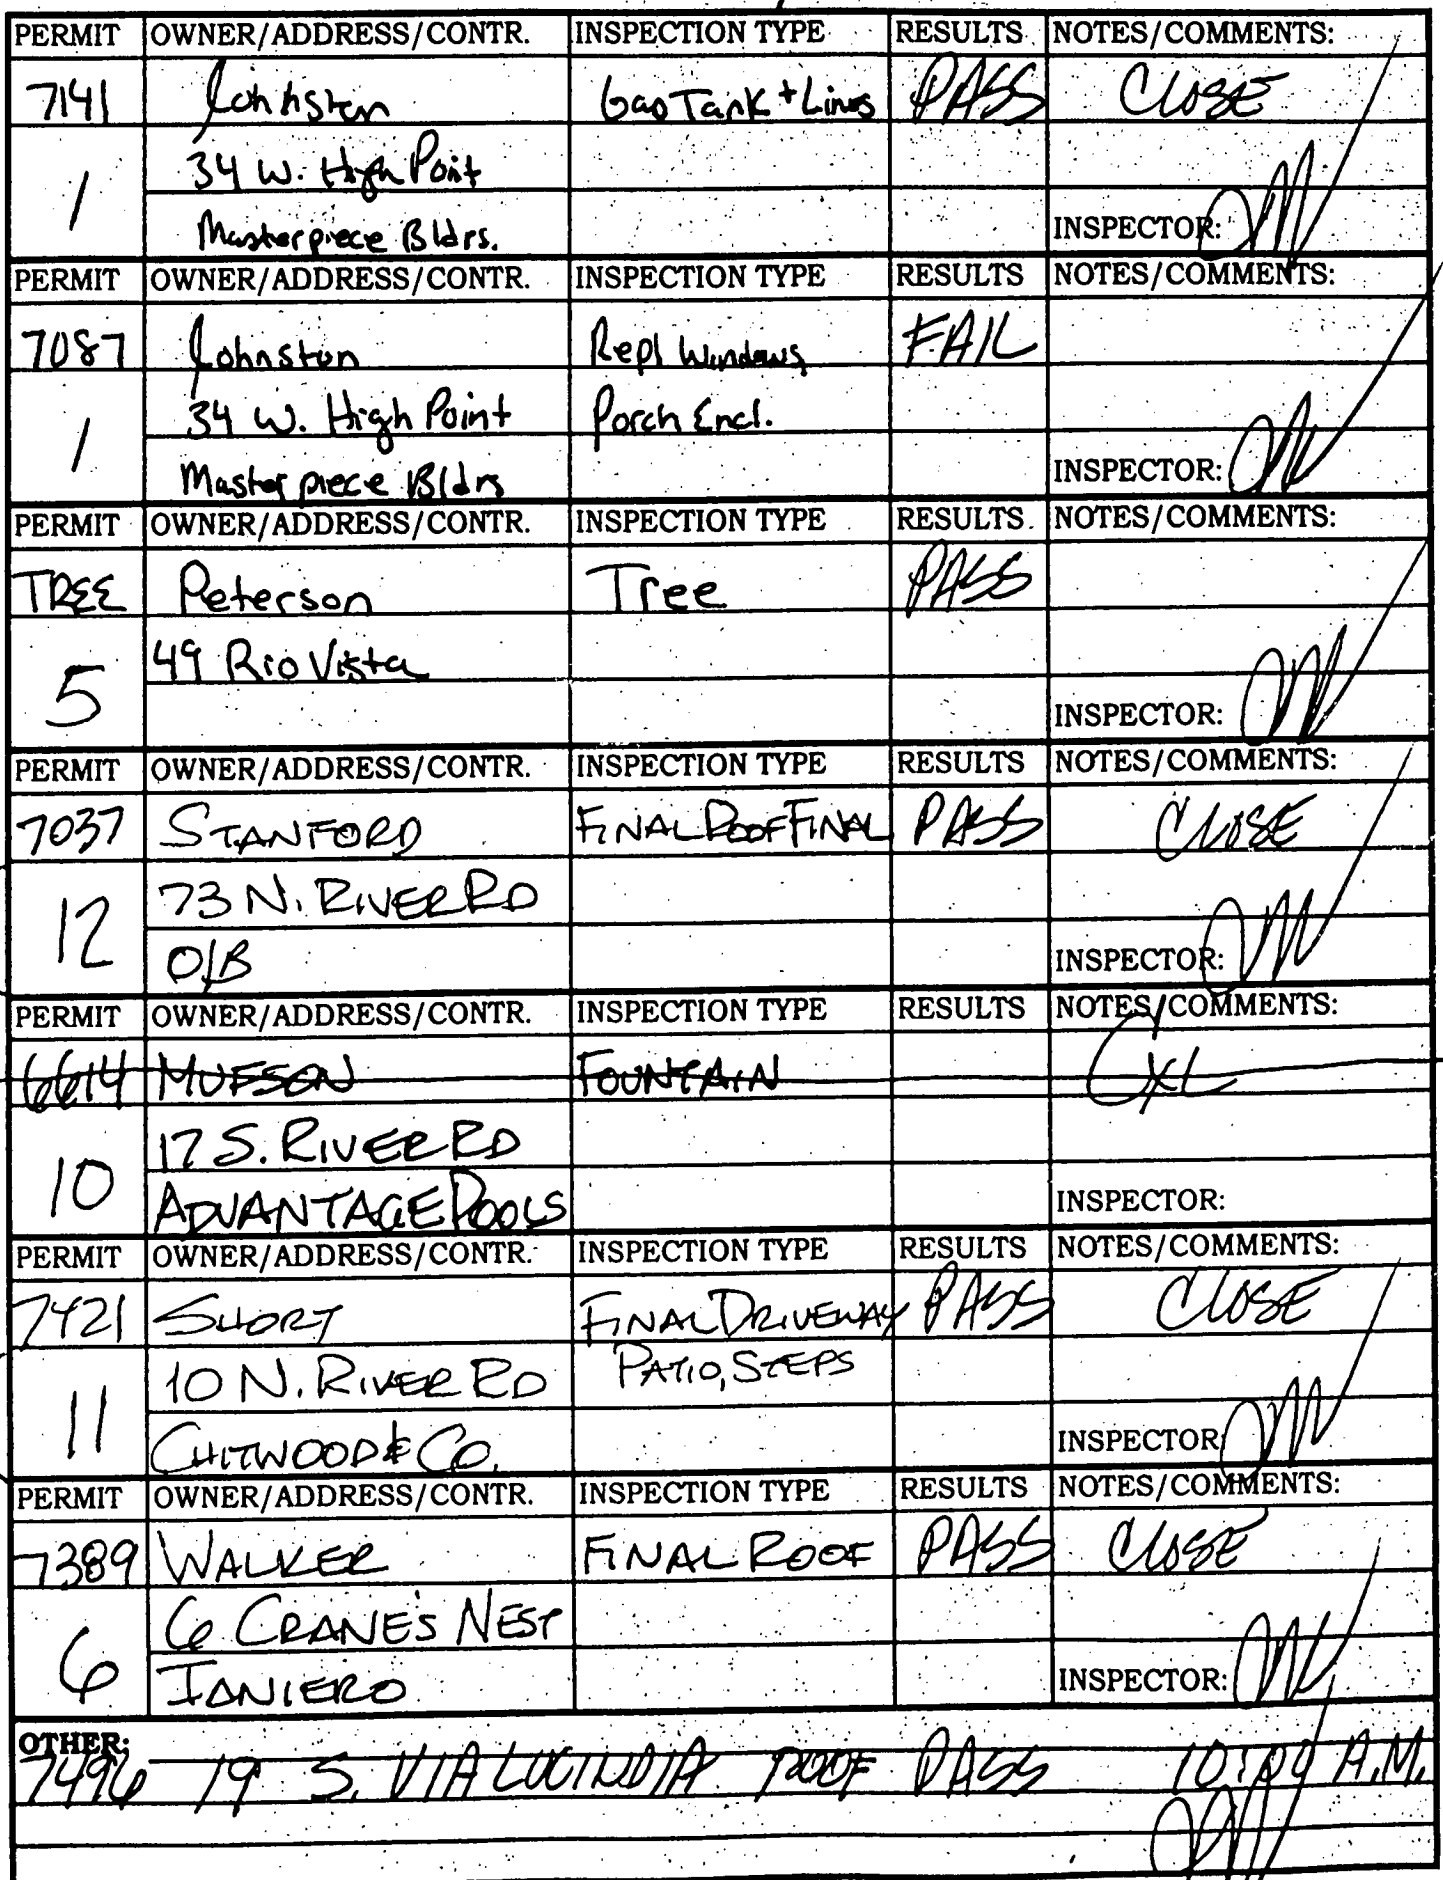 PERMIT OWNER/ADDRESS/CONTR. INSPECTION TYPE RESULTS NOTES/COMMENTS:
7141 Johnston Gas Tank + Lines PASS CLOSE
1 34 W. High Point
Masterpiece Bldrs. INSPECTOR:
PERMIT OWNER/ADDRESS/CONTR. INSPECTION TYPE RESULTS NOTES/COMMENTS:
7087 Johnston Repl Windows FAIL
1 34 W. High Point Porch Encl.
Masterpiece Bldrs INSPECTOR:
PERMIT OWNER/ADDRESS/CONTR. INSPECTION TYPE RESULTS NOTES/COMMENTS:
TREE Peterson Tree PASS
5 49 Rio Vista
INSPECTOR:
PERMIT OWNER/ADDRESS/CONTR. INSPECTION TYPE RESULTS NOTES/COMMENTS:
7037 STANFORD FINAL ROOF FINAL PASS CLOSE
12 73 N. RIVER RD
O/B INSPECTOR:
PERMIT OWNER/ADDRESS/CONTR. INSPECTION TYPE RESULTS NOTES/COMMENTS:
6614 MUFSON FOUNTAIN CXL
10 17 S. RIVER RD
ADVANTAGE POOLS INSPECTOR:
PERMIT OWNER/ADDRESS/CONTR. INSPECTION TYPE RESULTS NOTES/COMMENTS:
7421 SHORT FINAL DRIVEWAY PASS CLOSE
11 10 N. RIVER RD PATIO, STEPS
CHITWOOD & CO. INSPECTOR:
PERMIT OWNER/ADDRESS/CONTR. INSPECTION TYPE RESULTS NOTES/COMMENTS:
7389 WALKER FINAL ROOF PASS CLOSE
6 6 CRANE'S NEST
IANIERO INSPECTOR:
OTHER:
7496 19 S. VIA LUCINDIA ROOF PASS A.M.